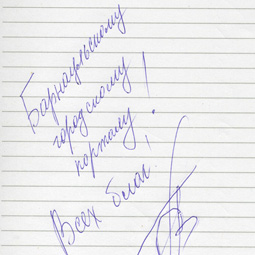 Барнаульскому
городскому
порталу!
Всех благ!